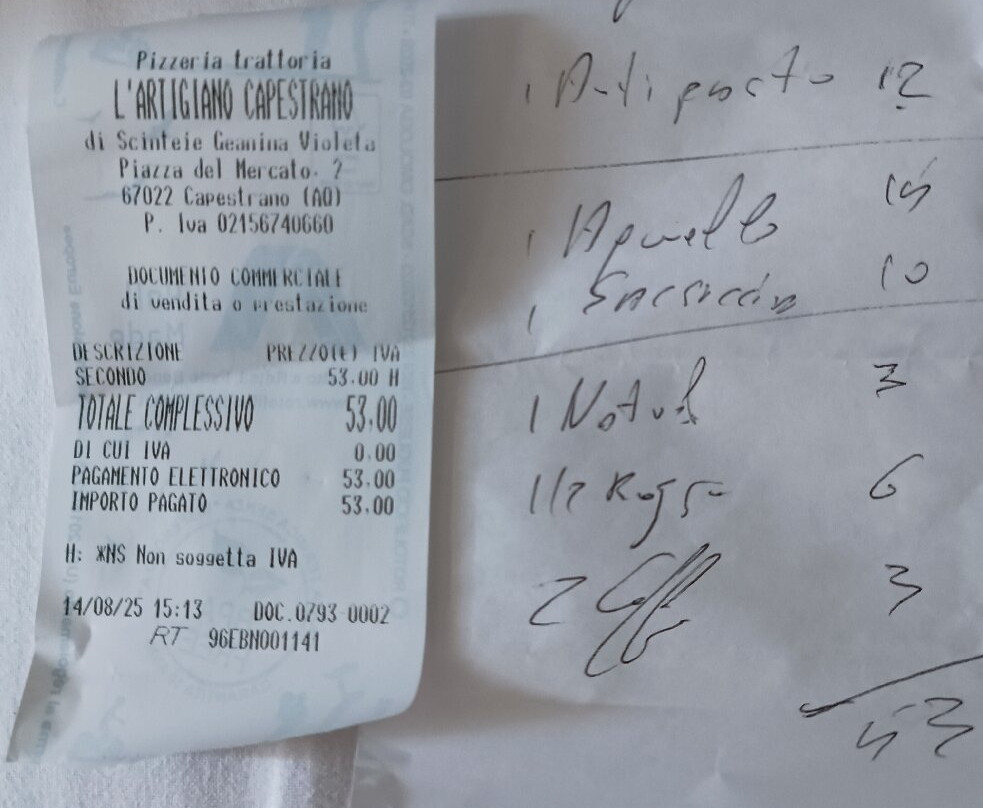 Pizzeria trattoria
L'ARTIGIANO CAPESTRANO
di Scinteie Geanina Violeta
Piazza del Mercato. 2
67022 Capestrano (AQ)
P. Iva 02156740660
DOCUMENTO COMMERCIALE
di vendita o prestazione
DESCRIZIONE PREZZO(€) IVA
SECONDO 53.00 H
TOTALE COMPLESSIVO 53,00
DI CUI IVA 0.00
PAGAMENTO ELETTRONICO 53.00
IMPORTO PAGATO 53.00
H: *NS Non soggetta IVA
14/08/25 15:13 DOC.0793-0002
RT 96EBN001141
1 Antipasto 12
1 Agnello 19
1 10
1 Natural 3
1/2 Rosso 6
2 Caffè 3
53